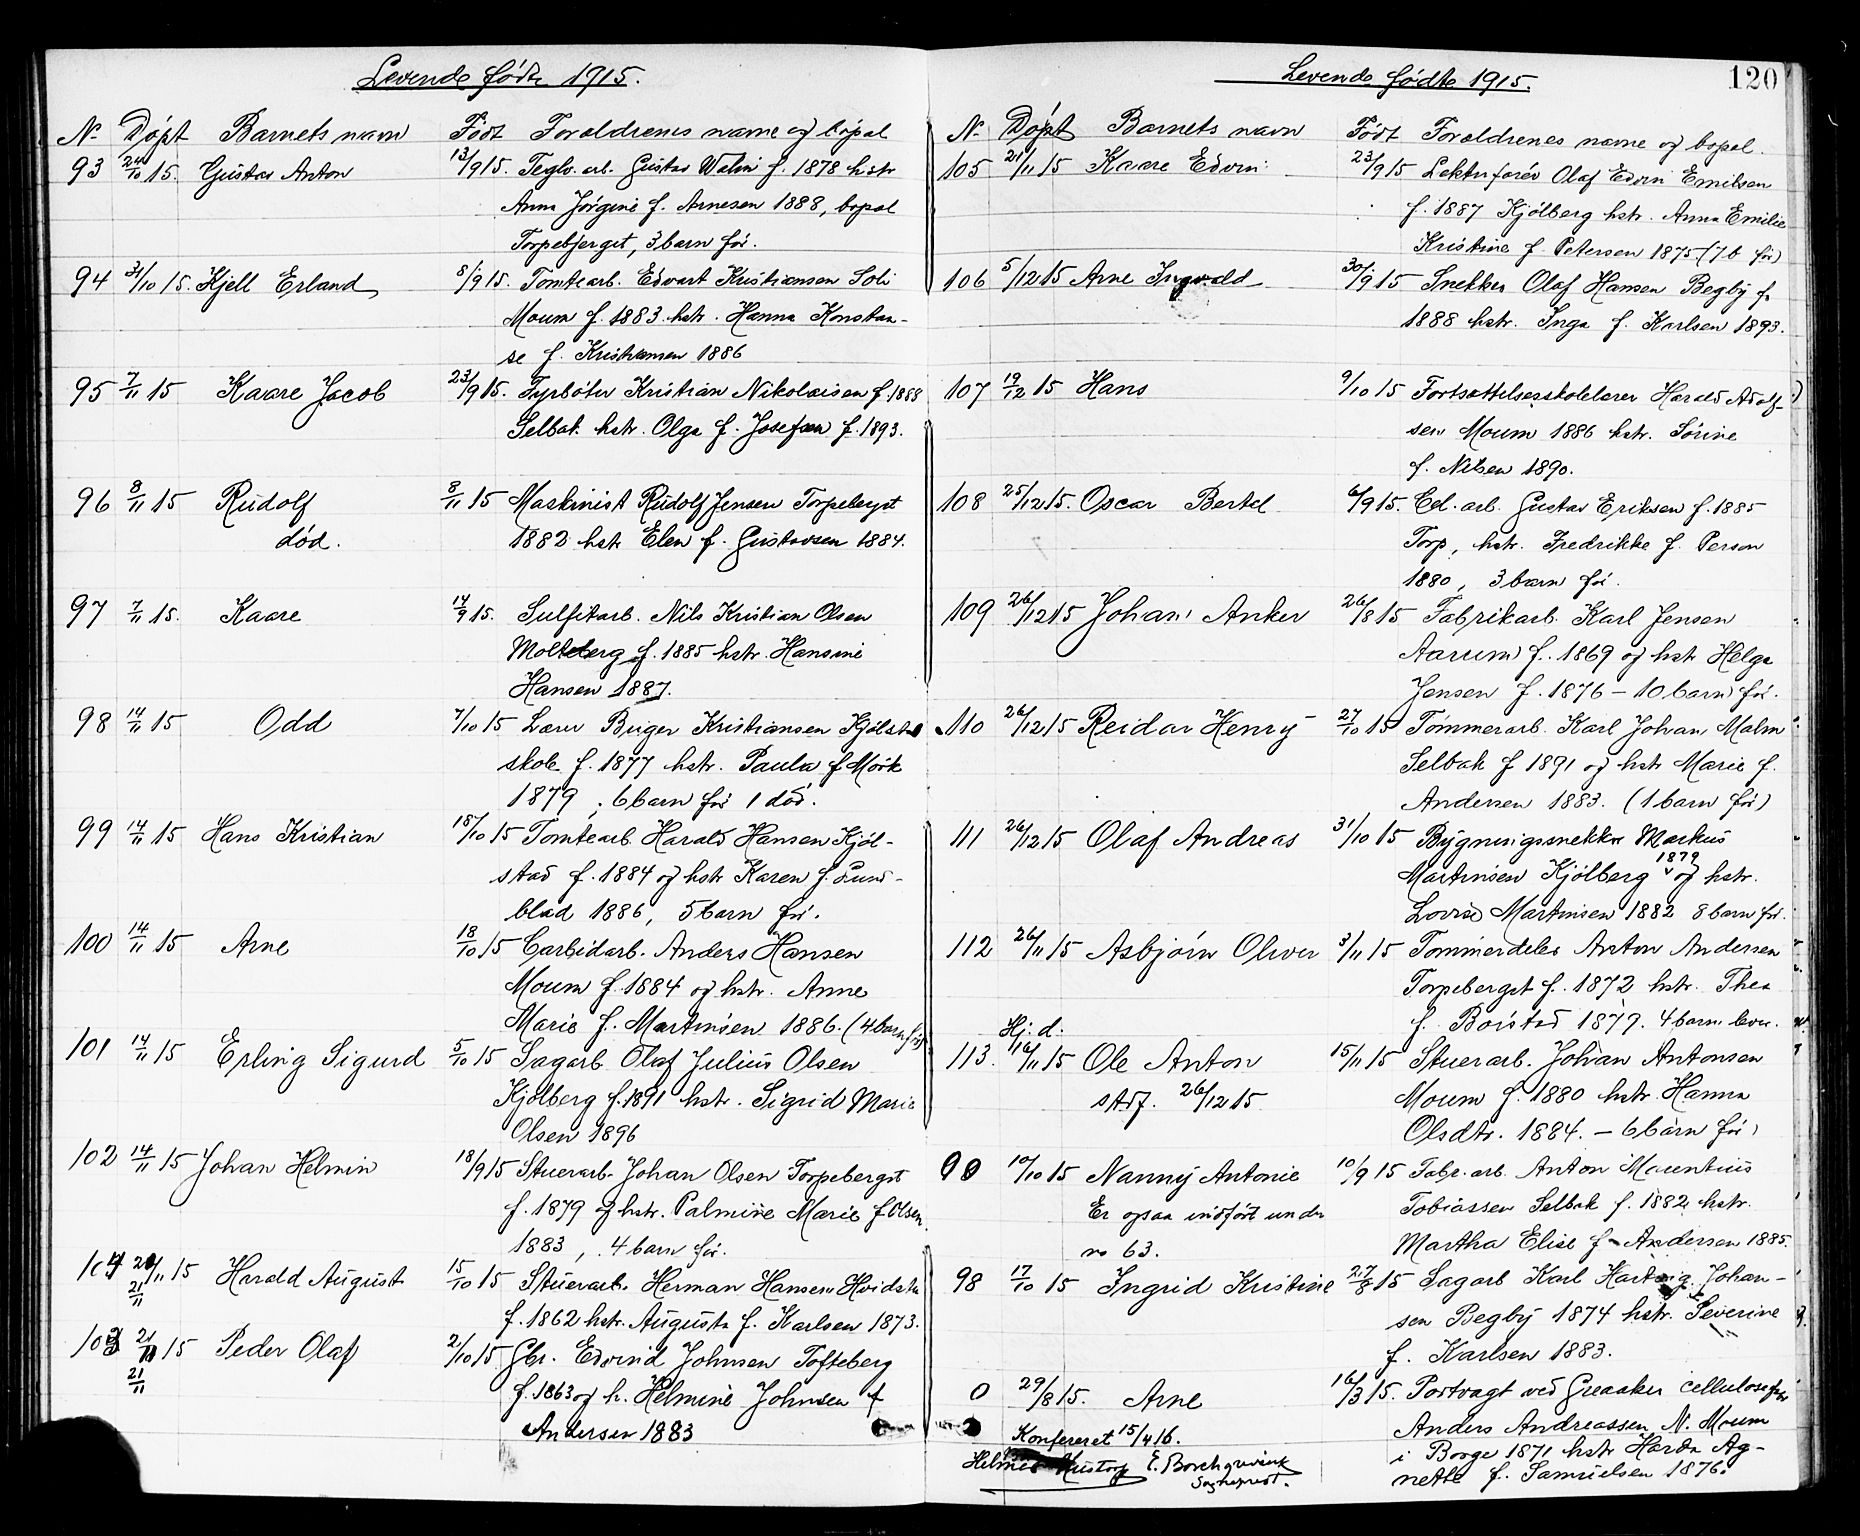 Levende fødte 1915.
N. Døpt Barnets navn Født Forældrenes navne og bopæl
93 24/10 15. Gustav Anton 13/9 15. Teglv. arb. Gustav Walin f. 1878 hstr
Anna Jørgine f. Arnesen 1888, bopæl
Torpebjerget, 3 barn før.
94 31/10 15. Kjell Erland 8/9 15. Tomtearb. Edvart Kristiansen Soli
Moum f. 1883 hstr. Hanna Konstan-
se f. Kristiansen 1886
95 7/11 15 Kaare Jacob 23/9 15. Fyrbøter Kristian Nikolaisen f. 1888
Selbak hstr. Olga f. Josefsen f. 1893.
96 8/11 15 Rudolf 8/11 15 Maskinist Rudolf Jensen Torpeberget
død. 1882 hstr Elen f. Gustavsen 1884.
97 7/11 15. Kaare 14/9 15. Sulfitarb. Nils Kristian Olsen
Molteberg f. 1885 hstr. Hansine
Hansen 1887.
98 14/11 15 Odd 7/10 15 Lærer Birger Kristiansen Kjølstad
skole f. 1877 hstr. Paula f Mørk
1879, 6 barn før 1 død.
99 14/11 15 Hans Kristian 18/10 15 Tomtearb. Harald Hansen Kjøl-
stad f. 1884 og hstr Karen f. Lund-
blad 1886, 5 barn før.
100 14/11 15 Arne 18/10 15 Carbidarb. Anders Hansen
Moum f. 1884 og hstr. Anne
Marie f. Martinsen 1886. (4 barn før)
101 14/11 15 Erling Sigurd 5/10 15 Sagarb Olaf Julius Olsen
Kjølberg f. 1891 hstr. Sigrid Marie
Olsen 1896
102 14/11 15 Johan Helmin 18/9 15 Stuerarb. Johan Olsen Torpeberget
f. 1879 og hstr. Palmine Marie f Olsen
1883, 4 barn før.
104 21/11 15 Harald August 15/10 15 Stuerarb. Herman Hansen Hvidsten
21/11 f. 1862 hstr. Augusta f. Karlsen 1873.
103 21/11 15 Peder Olaf 2/10 15 Gbr. Edvind Johnsen Tofteberg
21/11 f. 1863 og h. Helmine Johnsen f
Andersen 1883
Levende fødte 1915. 120
N. Døpt Barnets navn Født Forældrenes navne og bopæl.
105 21/11 15 Kaare Edvin 23/9 15 Lektrforev Olaf Edvin Emilsen
f. 1887 Kjølberg hstr. Anna Emilie
Kristine f. Petersen 1875 (7 b før)
106 5/12 15 Arne Ingvald 30/9 15 Snekker Olaf Hansen Begby f.
1888 hstr. Inga f. Karlsen 1893.
107 19/12 15 Hans 9/10 15 Fortsættelsesskolelærer Harald Adolf-
sen Moum 1886 hstr. Sørine
f. Nilsen 1890.
108 25/12 15. Oscar Bertel 6/9 15. Cel. arb. Gustav Eriksen f. 1885
Torp, hstr. Fredrikke f. Person
1880, 3 barn før.
109 26/12 15 Johan Anker 26/8 15 Fabrikarb. Karl Jensen
Aarum f. 1869 og hstr Helga
Jensen f. 1876 – 10 barn før.
110 26/12 15 Reidar Henry 27/10 15 Tømmerarb. Karl Johan Malm
Selbak f 1891 og hstr Marie f.
Andersen 1883. (1 barn før)
111 26/12 15 Olaf Andreas 31/10 15 Bygningssnekker Markus
Martinsen Kjølberg 1879 og hstr.
Lovise Martinsen 1882 8 barn før.
112 26/11 15 Asbjørn Oliver 3/11 15 Tømmerdeler Anton Andersen
Torpeberget f. 1872 hstr. Thea
f. Borstad 1877. 4 barn lev.
Hj. d.
113. 16/11 15 Ole Anton 15/11 15 Stuerarb. Johan Antonsen
stadf. 26/12 15 Moum f. 1880 hstr. Hanna
Olsdtr. 1884. – 6 barn før
90 10/10 15 Nanny Antonie 10/9 15 Fabr. arb. Anton Mauritius
Er ogsaa indført under Tobiassen Selbak f. 1882 hstr.
no 63. Martha Elise f. Andersen 1885.
98 17/10 15 Ingrid Kristine 27/8 15 Sagarb Karl Hartvig Johan-
sen Begby 1874 hstr. Severine
f. Karlsen 1883.
0 29/8 15. Arne 16/3 15. Portvagt ved Greaaker cellulosefabr
Anders Andreassen N. Moum
i Borge 1871 hstr Harda Ag-
nette f. Samuelsen 1876.
Konfereret 15/4 16.
E. Borchgrevink
Sogneprest.